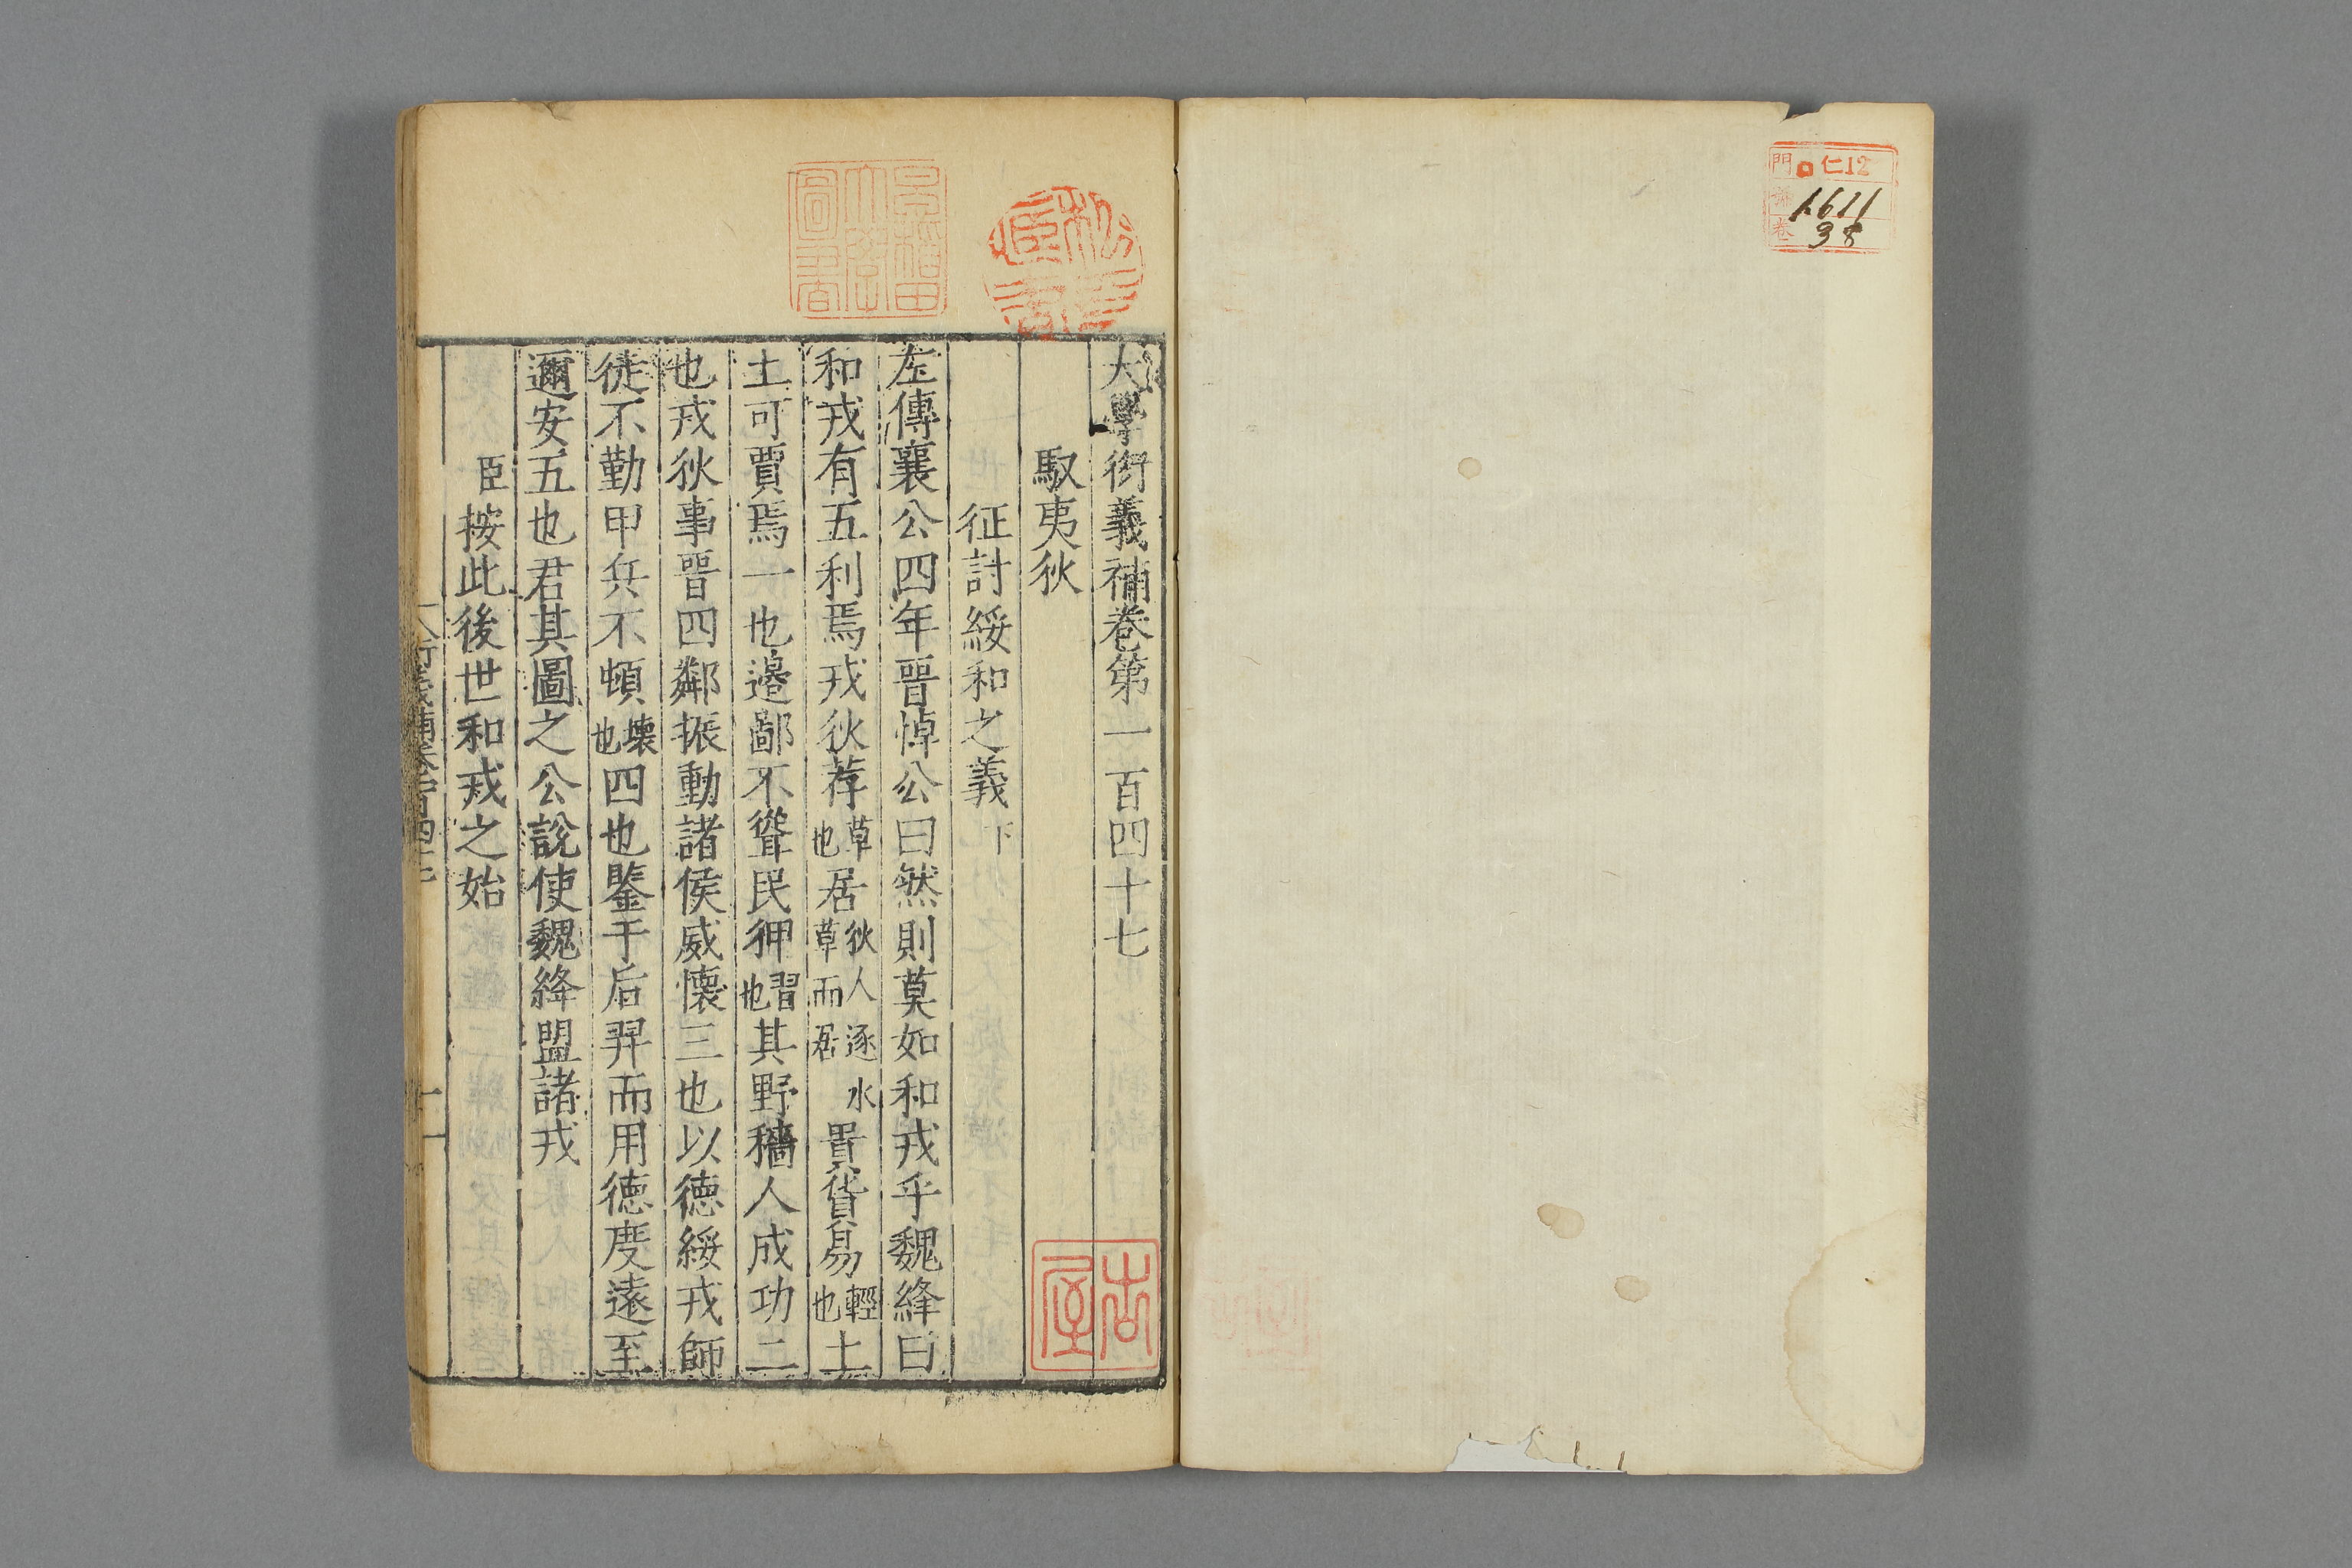 門 仁12
1611
卷 38
大學衍義補卷第一百四十七
馭夷狄
征討綏和之義下
左傳襄公四年晉悼公曰然則莫如和戎乎魏絳曰
和戎有五利焉戎狄荐草也居狄人逐水草而居貴貨易輕也土
土可賈焉一也邊鄙不聳民狎習也其野穡人成功二
也戎狄事晉四鄰振動諸侯威懷三也以德綏戎師
徒不勤甲兵不頓壞也四也鑒于后羿而用德度遠至
邇安五也君其圖之公說使魏絳盟諸戎
臣按此後世和戎之始
早稻田大學圖書